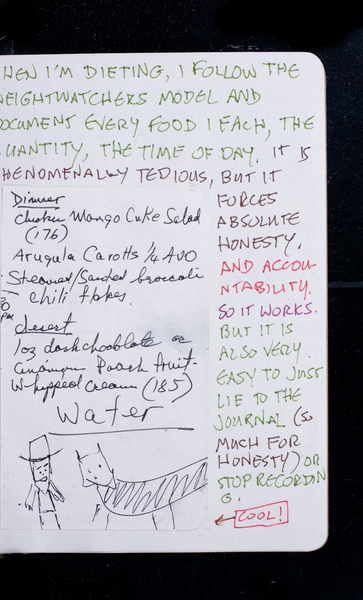 HEN I'M DIETING, I FOLLOW THE
EIGHTWATCHERS MODEL AND
OCUMENT EVERY FOOD I EACH, THE
UANTITY, THE TIME OF DAY. IT IS
HENOMENALLY TEDIOUS, BUT IT
FORCES
ABSOLUTE
HONESTY.
AND ACCOU-
NTABILITY.
SO IT WORKS.
BUT IT IS
ALSO VERY
EASY TO JUST
LIE TO THE
JOURNAL (SO
MUCH FOR
HONESTY) OR
STOP RECORDIN
G.
COOL!
Dinner
Chicken Mango Cuke Salad
(176)
Arugula Carotts 1/4 Avo
Steamed/Sauted broccoli
chili flakes.
desert
1oz dark chocolate or
cinnamon Poach fruit-
Whipped Cream (185)
Water